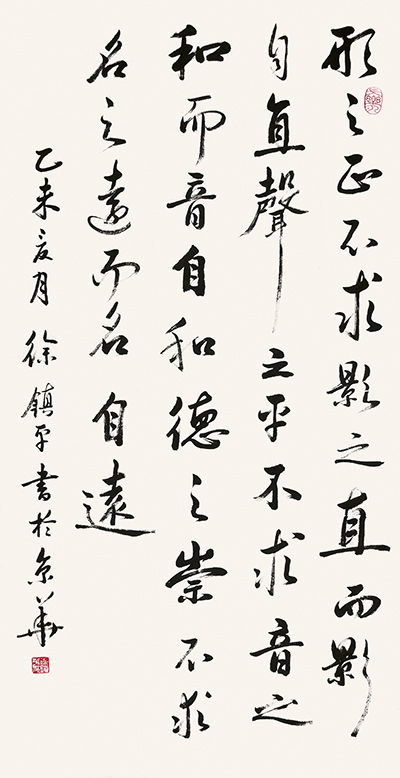 形之正不求影之直而影
自直聲之平不求音之
和而音自和德之崇不求
名之遠而名自遠
乙未夏月徐鎮平書於京華